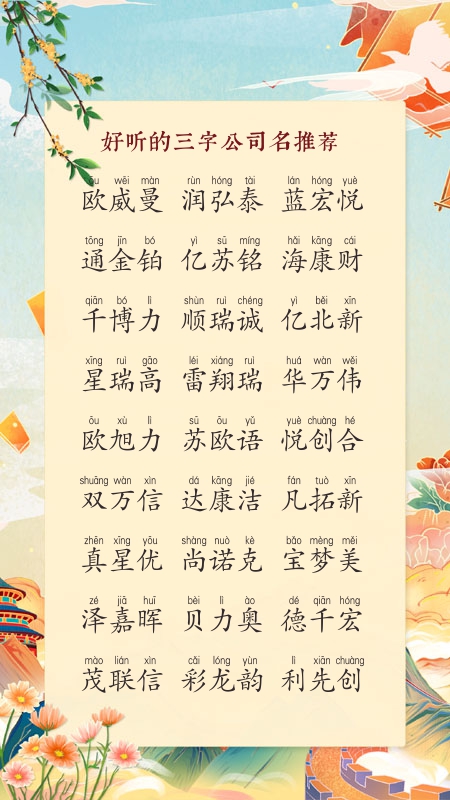 好听的三字公司名推荐
ōu wēi màn rùn hóng tài lán hóng yuè
欧威曼 润弘泰 蓝宏悦
tōng jīn bó yì sū míng hǎi kāng cái
通金铂 亿苏铭 海康财
qiān bó lì shùn ruì chéng yì běi xīn
千博力 顺瑞诚 亿北新
xīng ruì gāo léi xiáng ruì huá wàn wěi
星瑞高 雷翔瑞 华万伟
ōu xù lì sū ōu yǔ yuè chuàng hé
欧旭力 苏欧语 悦创合
shuāng wàn xìn dá kāng jié fán tuò xīn
双万信 达康洁 凡拓新
zhēn xīng yōu shàng nuò kè bǎo mèng měi
真星优 尚诺克 宝梦美
zé jiā huī bèi lì ào dé qiān hóng
泽嘉晖 贝力奥 德千宏
mào lián xìn cǎi lóng yùn lì xiān chuàng
茂联信 彩龙韵 利先创